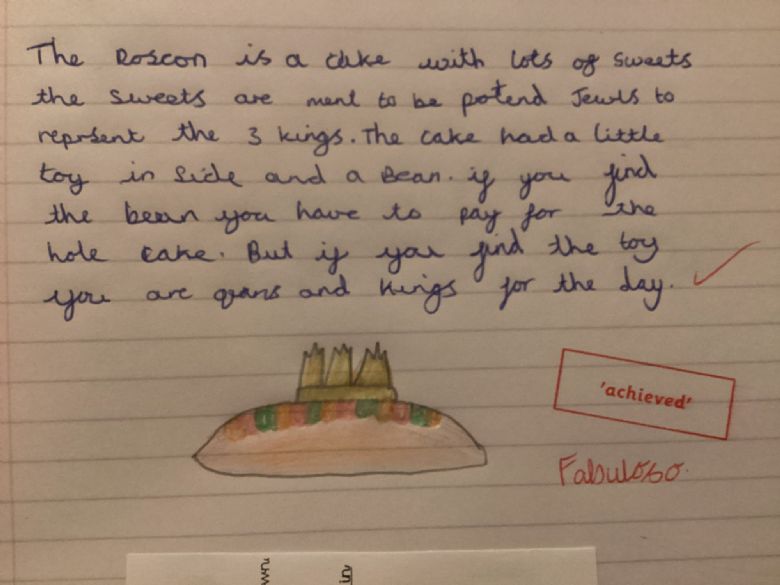 The Roscon is a cake with lots of sweets
the sweets are ment to be potend Jewls to
reprsent the 3 kings. The cake had a little
toy in side and a Bean. if you find
the bean you have to pay for the
hole cake. But if you find the toy
you are qrans and kings for the day.
'achieved'
Fabuloso.